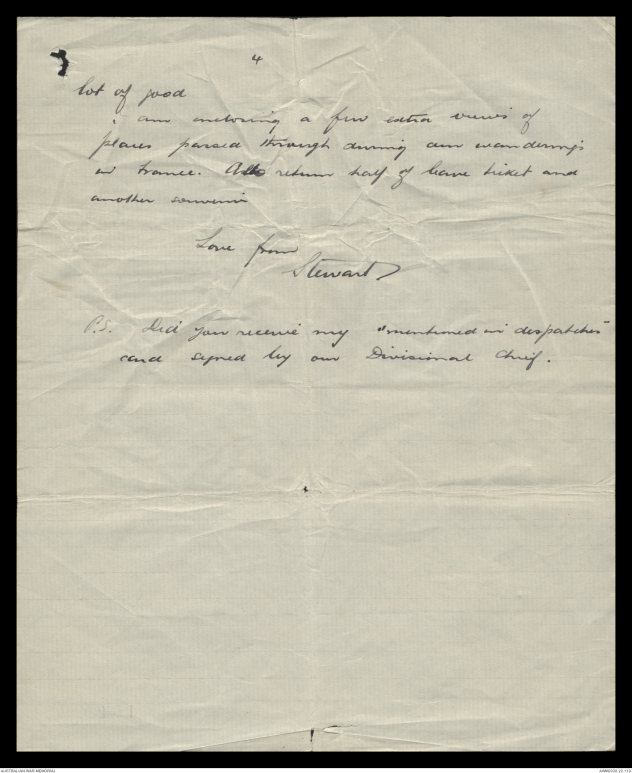 4
lot of good
I am enclosing a few extra views of
places passed through during our wanderings
in France. Also return half of leave ticket and
another souvenir
Love from
Stewart
P.S. Did you receive my "mentioned in despatches"
card signed by our Divisional Chief.
AUSTRALIAN WAR MEMORIAL